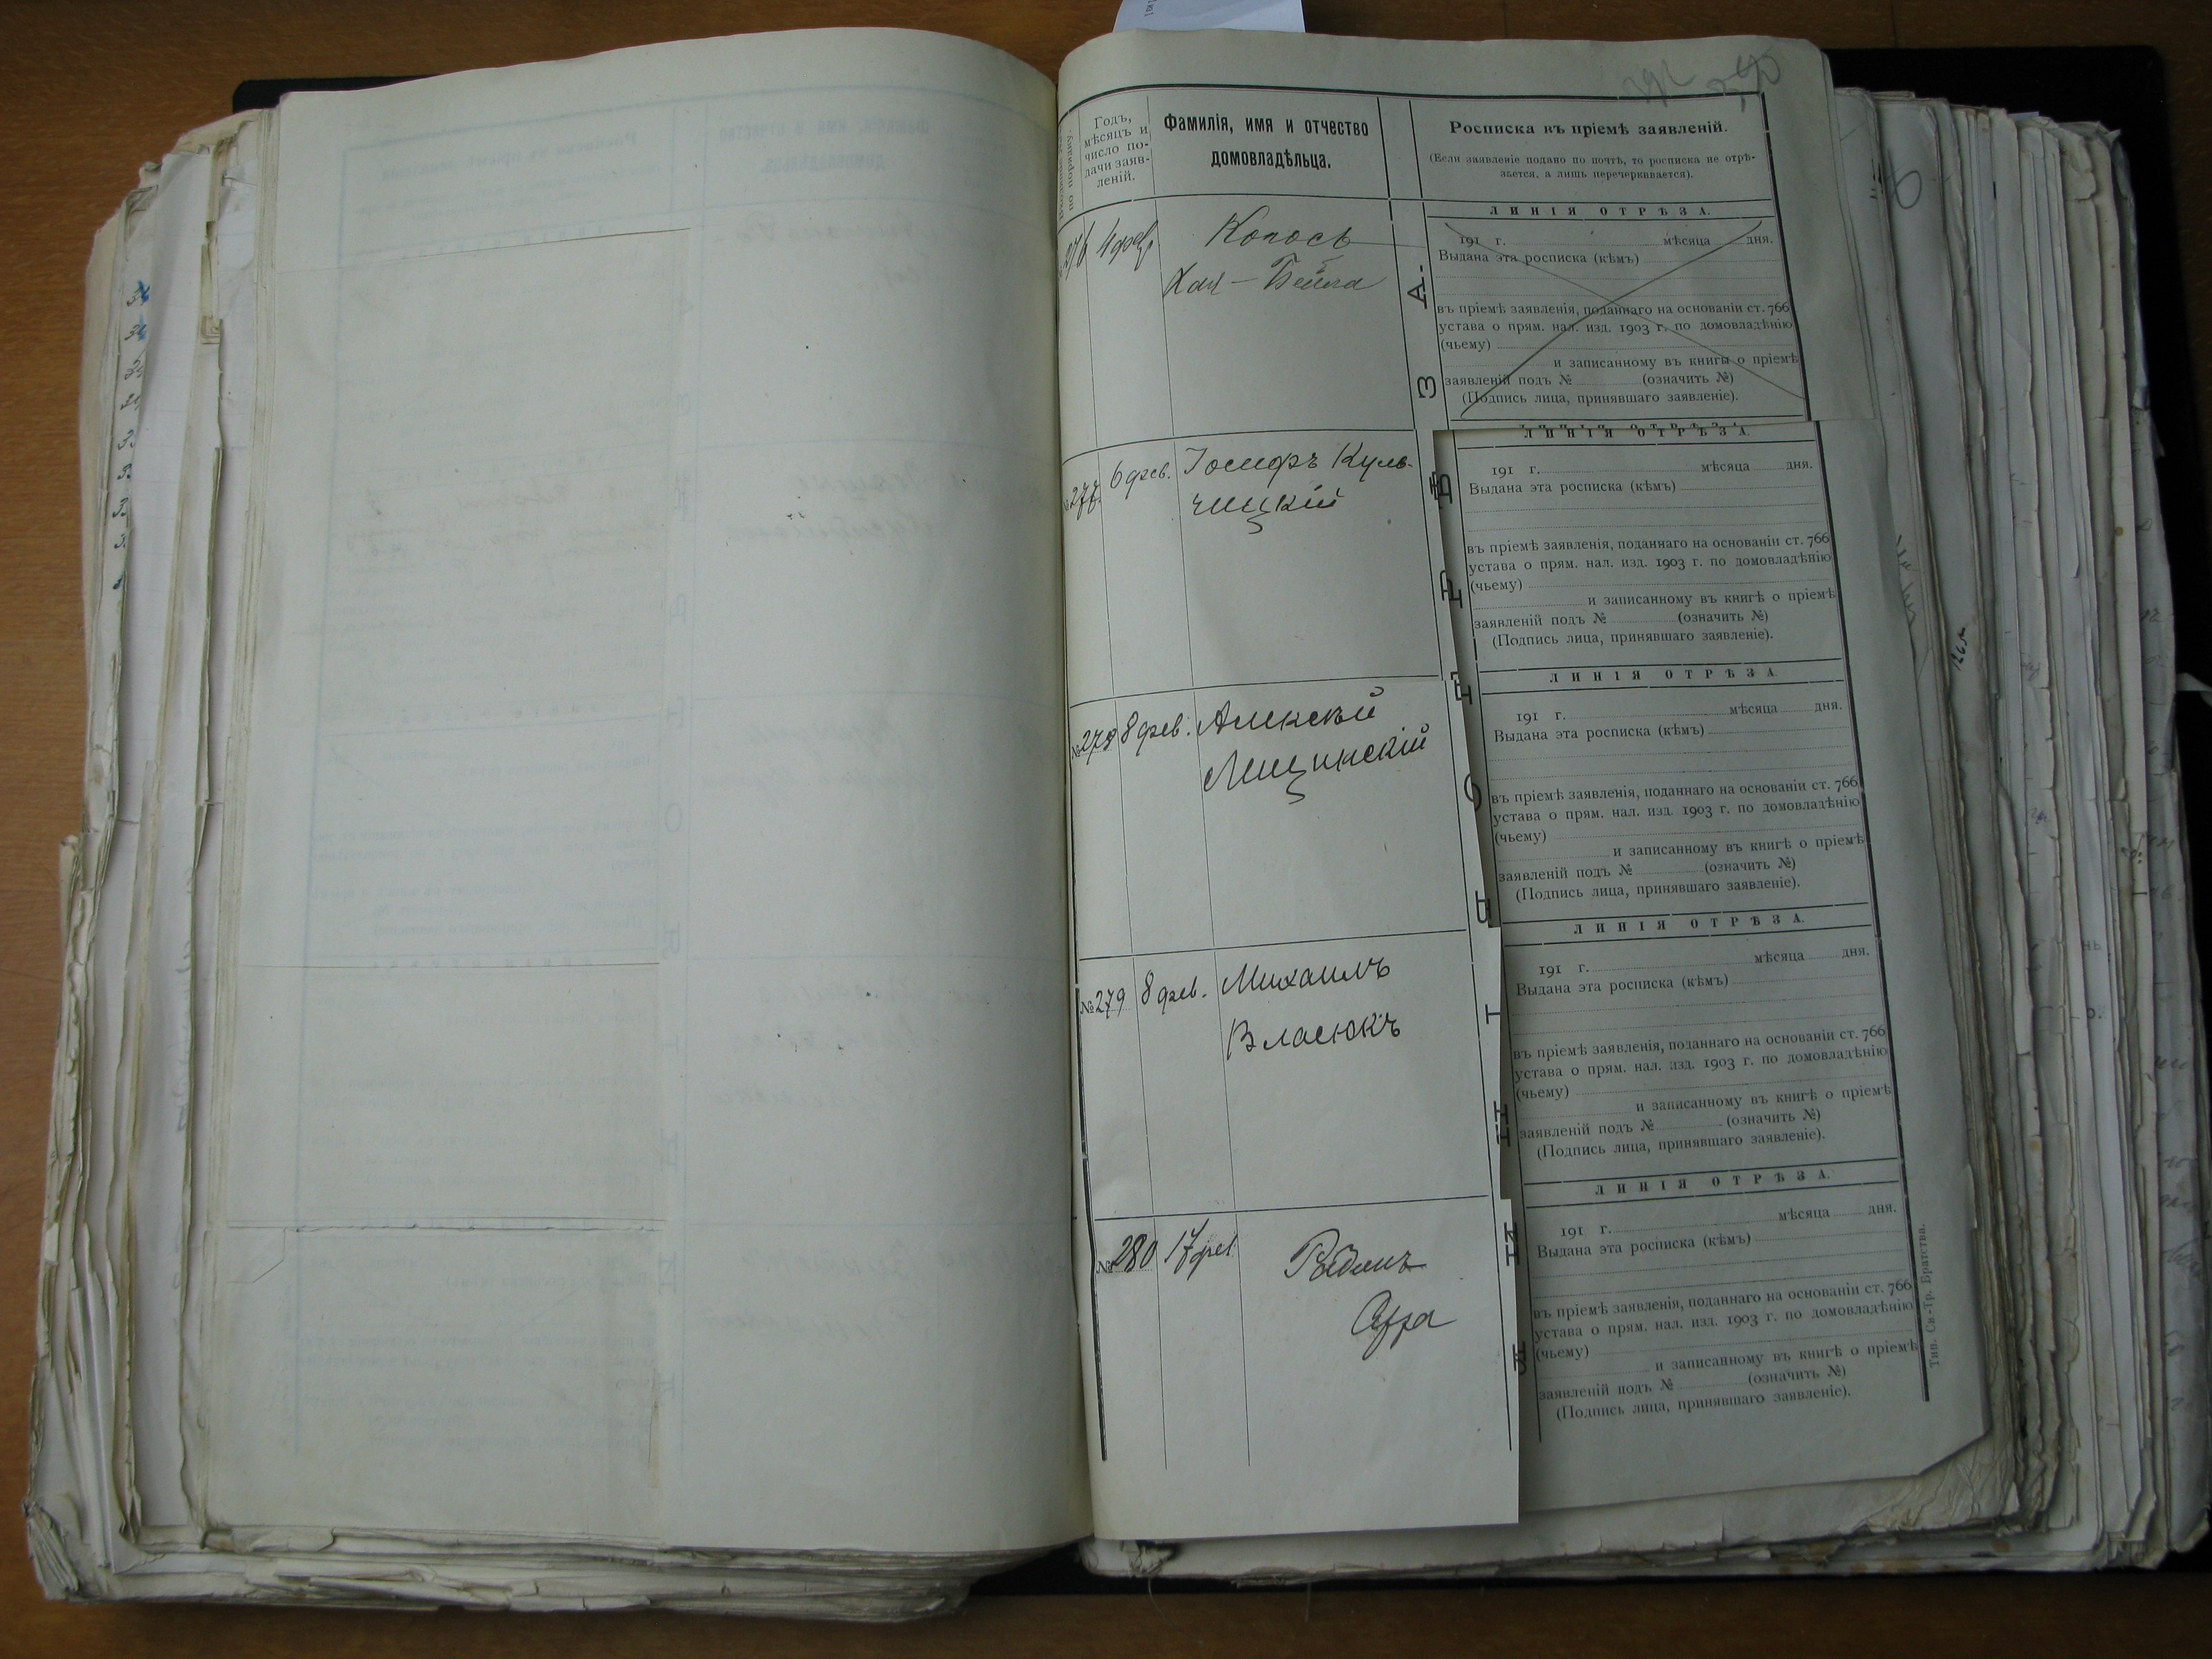 Годъ,
мѣсяцъ и
число по-
дачи заяв-
леній.
Фамилія, имя и отчество
домовладѣльца.
Росписка въ пріемѣ заявленій.
(Если заявленіе подано по почтѣ, то росписка не отрѣ-
зается, а лишь перечеркивается).
ЛИНІЯ ОТРѢЗА.
276 4 фев.
Копось
Хая-Бейла
191 г. мѣсяца дня.
Выдана эта росписка (кѣмъ)
въ пріемѣ заявленія, поданнаго на основаніи ст. 766
устава о прям. нал. изд. 1903 г. по домовладѣнію
(чьему)
и записанному въ книгы о пріемѣ
заявленій подъ № (означить №)
(Подпись лица, принявшаго заявленіе).
ЛИНІЯ ОТРѢЗА.
№ 277. 6 фев. Іосифъ Куль-
чицкій
191 г. мѣсяца дня.
Выдана эта росписка (кѣмъ)
въ пріемѣ заявленія, поданнаго на основаніи ст. 766
устава о прям. нал. изд. 1903 г. по домовладѣнію
(чьему)
и записанному въ книгѣ о пріемѣ
заявленій подъ № (означить №)
(Подпись лица, принявшаго заявленіе).
ЛИНІЯ ОТРѢЗА.
№ 8 фев. Алексѣй
Лищинскій
191 г. мѣсяца дня.
Выдана эта росписка (кѣмъ)
въ пріемѣ заявленія, поданнаго на основаніи ст. 766
устава о прям. нал. изд. 1903 г. по домовладѣнію
(чьему)
и записанному въ книгѣ о пріемѣ
заявленій подъ № (означить №)
(Подпись лица, принявшаго заявленіе).
ЛИНІЯ ОТРѢЗА.
№ 279 8 фев. Михаилъ
Власюкъ
191 г. мѣсяца дня.
Выдана эта росписка (кѣмъ)
въ пріемѣ заявленія, поданнаго на основаніи ст. 766
устава о прям. нал. изд. 1903 г. по домовладѣнію
(чьему)
и записанному въ книгѣ о пріемѣ
заявленій подъ № (означить №)
(Подпись лица, принявшаго заявленіе).
ЛИНІЯ ОТРѢЗА.
№ 280 17 фев
191 г. мѣсяца дня.
Выдана эта росписка (кѣмъ)
въ пріемѣ заявленія, поданнаго на основаніи ст. 766
устава о прям. нал. изд. 1903 г. по домовладѣнію
(чьему)
и записанному въ книгѣ о пріемѣ
заявленій подъ № (означить №)
(Подпись лица, принявшаго заявленіе).
Тип. Св.-Тр. Братства.